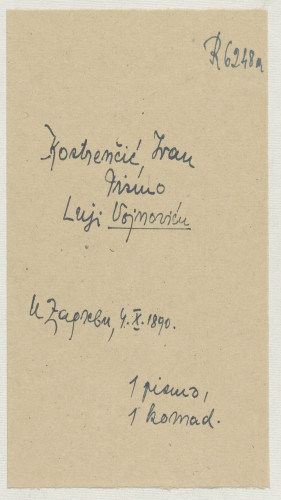 R6248a
Kostrenčić, Ivan
Pismo
Luji Vojnoviću
U Zagrebu, 4. X. 1890.
1 pismo,
1 komad.